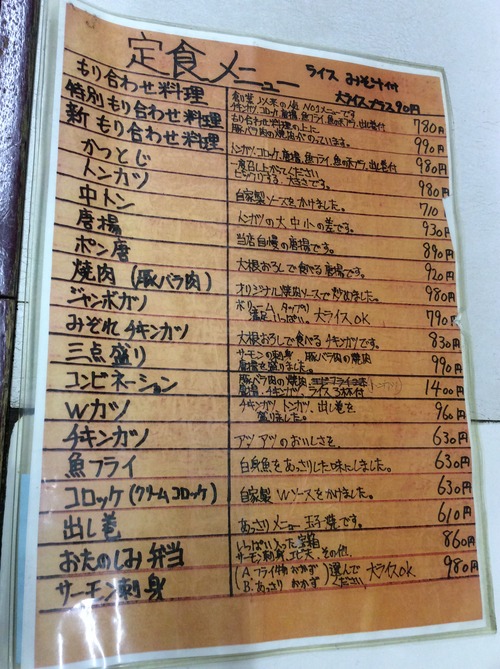 定食メニュー
ライス みそ汁付
大ライスプラス90円
もり合わせ料理 創業以来の人気No1メニューです。チキンカツ、コロッケ、唐揚、魚フライ、出し巻付 780円
特別もり合わせ料理 もり合わせ料理の上に豚バラ肉の焼肉がのっています。 990円
新もり合わせ料理 トンカツ、コロッケ、唐揚、魚フライ、出し巻付 980円
かつとじ 一度召し上がてください ビックリする、大きさです。 980円
トンカツ 自家製ソースをかけました。 710円
中トン トンカツの大中小の差です。 930円
唐揚 当店自慢の唐揚です。 890円
ポン唐 大根おろしで食べる唐揚です。 920円
焼肉(豚バラ肉) オリジナル焼肉ソースで炒めました。 980円
ジャンボカツ ボリュームタップリ 大ライスOK 790円
みぞれチキンカツ 大根おろしで食べるチキンカツです。 830円
三点盛り サーモンの刺身 豚バラ肉の焼肉 唐揚を盛りました。 990円
コンビネーション 豚バラ肉の焼肉、(トンカツ) 唐揚、チキンカツ、ライス 1400円
Wカツ チキンカツ、トンカツ、出し巻を盛りました。 960円
チキンカツ アツアツのおいしさを 630円
魚フライ 白身魚をあっさりした味にしました。 630円
コロッケ(クリームコロッケ) 自家製Wソースをかけました。 630円
出し巻 あっさりメニュー玉子焼です。 610円
おたのしみ弁当 いっぱい入った宝箱 サーモン刺身、その他 860円
サーモン刺身 (A.フライ物おかず B.あっさりおかず)選んでください 大ライスOK 980円